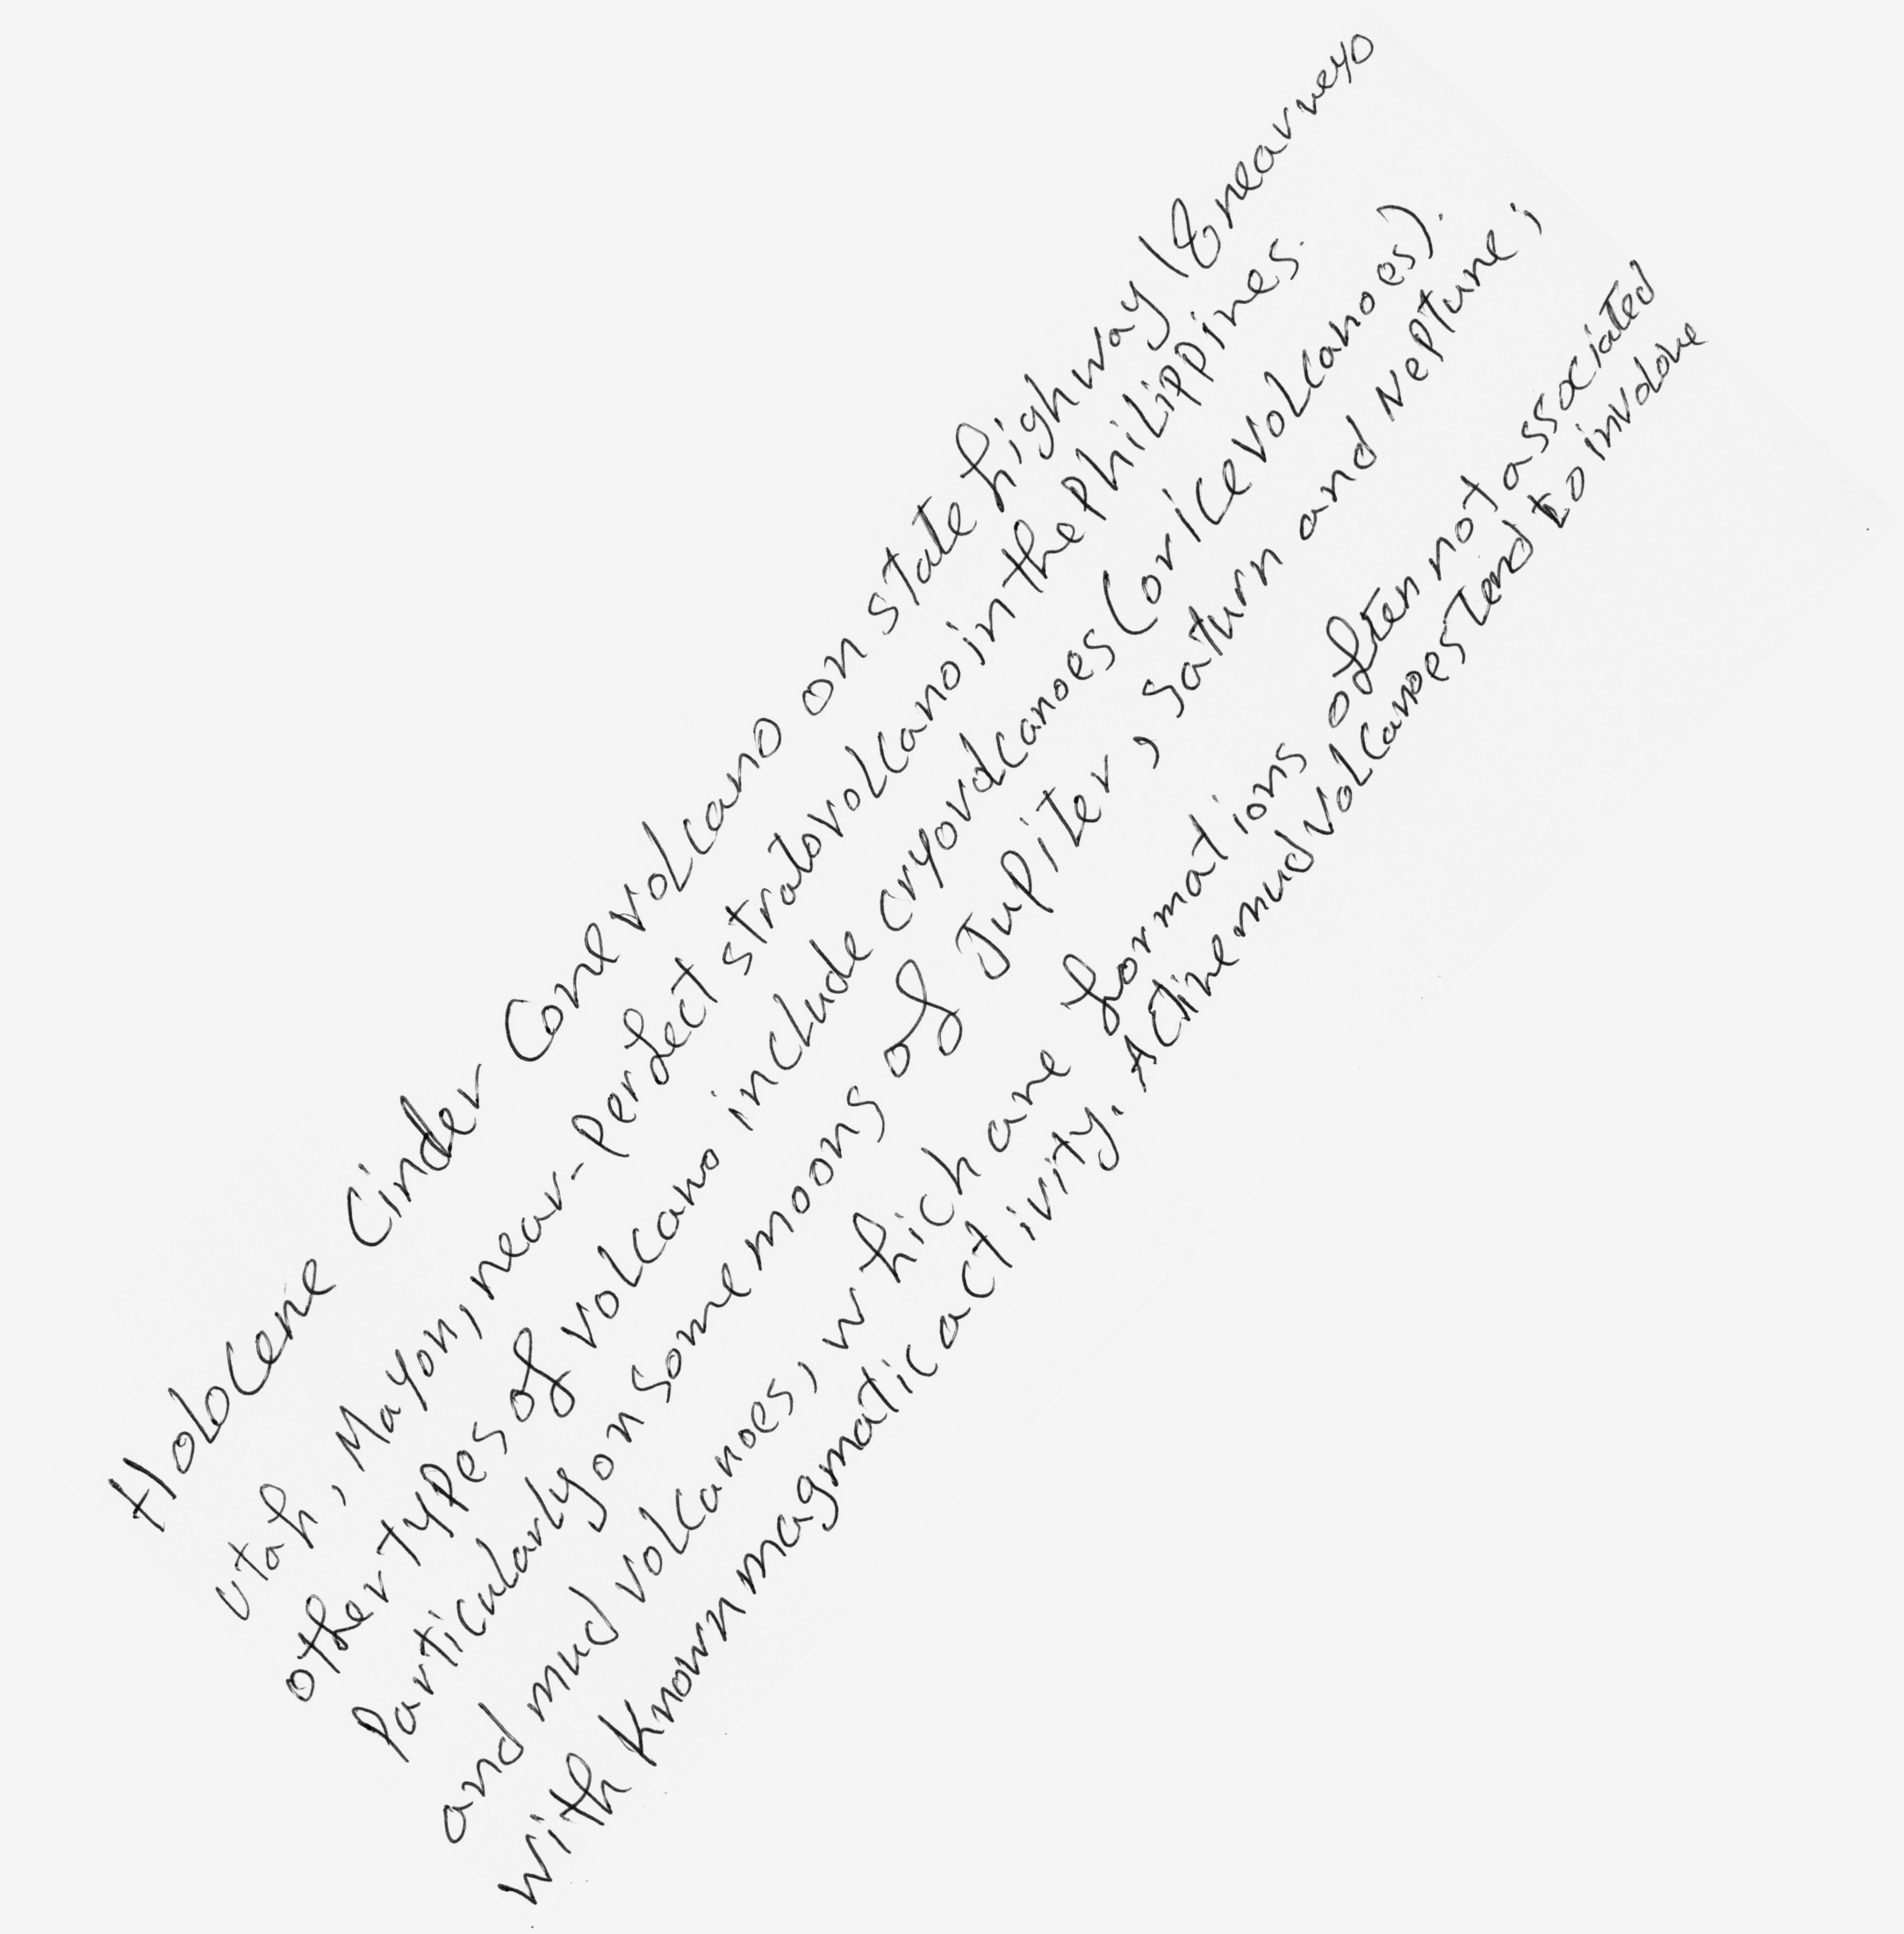 Holocene Cinder Cone volcano on state highway 18 near veyo
utah, Mayon, near-perfect stratovolcano in the philippines.
other types of volcano include cryovolcanoes (or ice volcanoes).
Particularly on some moons of Jupiter, saturn and Neptune;
and mud volcanoes, which are formations often not associated
with known magmatic activity. Active mud volcanoes tend to involve